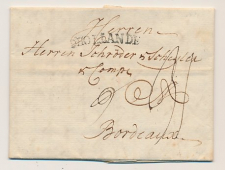 Herren
HOLLANDE
Herren Schröder & Schyler
& Comp.
Bordeaux